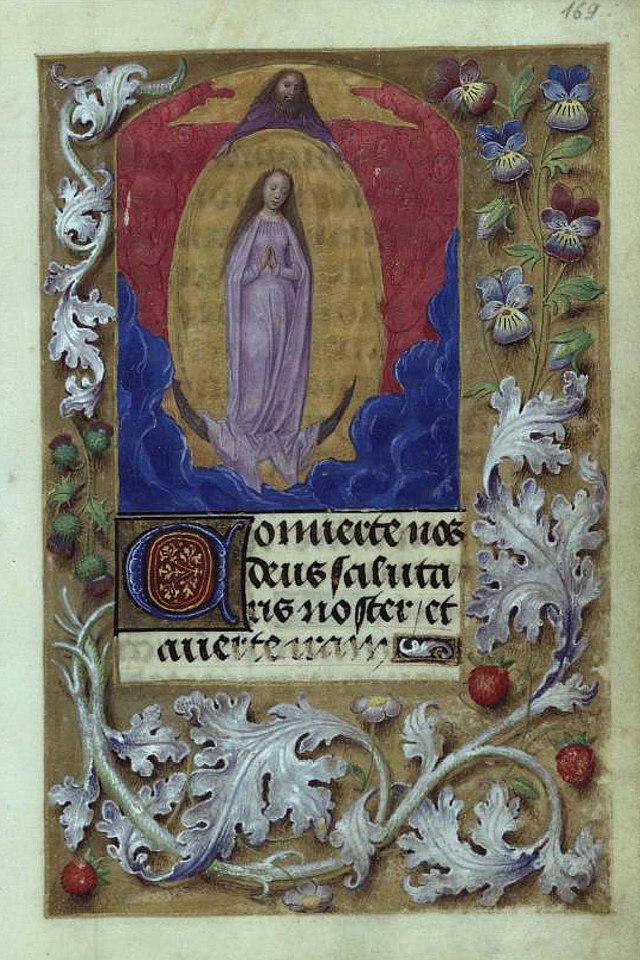 169
Conuerte nos
deus saluta
ris noster / et
auerte iram